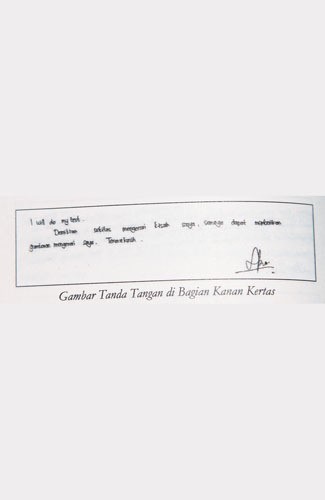 I will do my best...
Demikian sekilas mengenai kisah saya, semoga dapat memberikan
gambaran mengenai saya. Terima kasih.
Gambar Tanda Tangan di Bagian Kanan Kertas